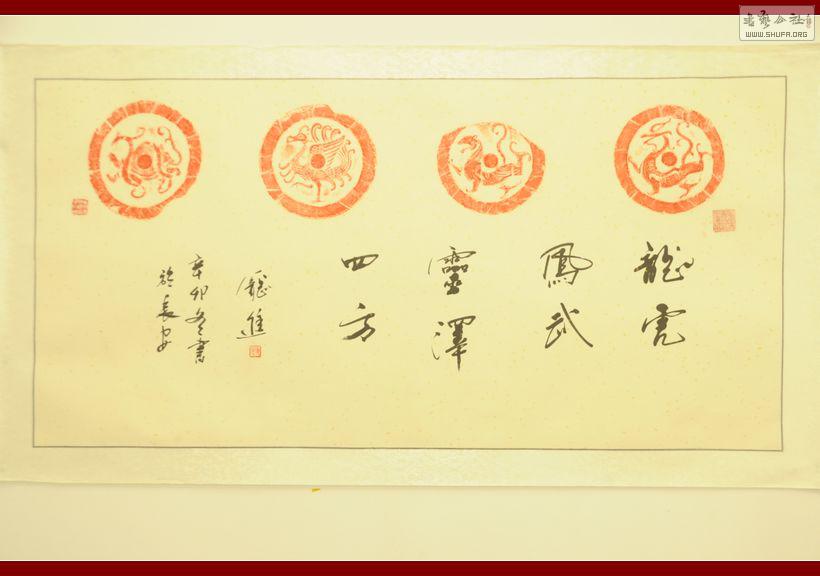 龍虎
鳳武
靈澤
四方
進
辛卯冬書
於長安
書藝公社
WWW.SHUFA.ORG